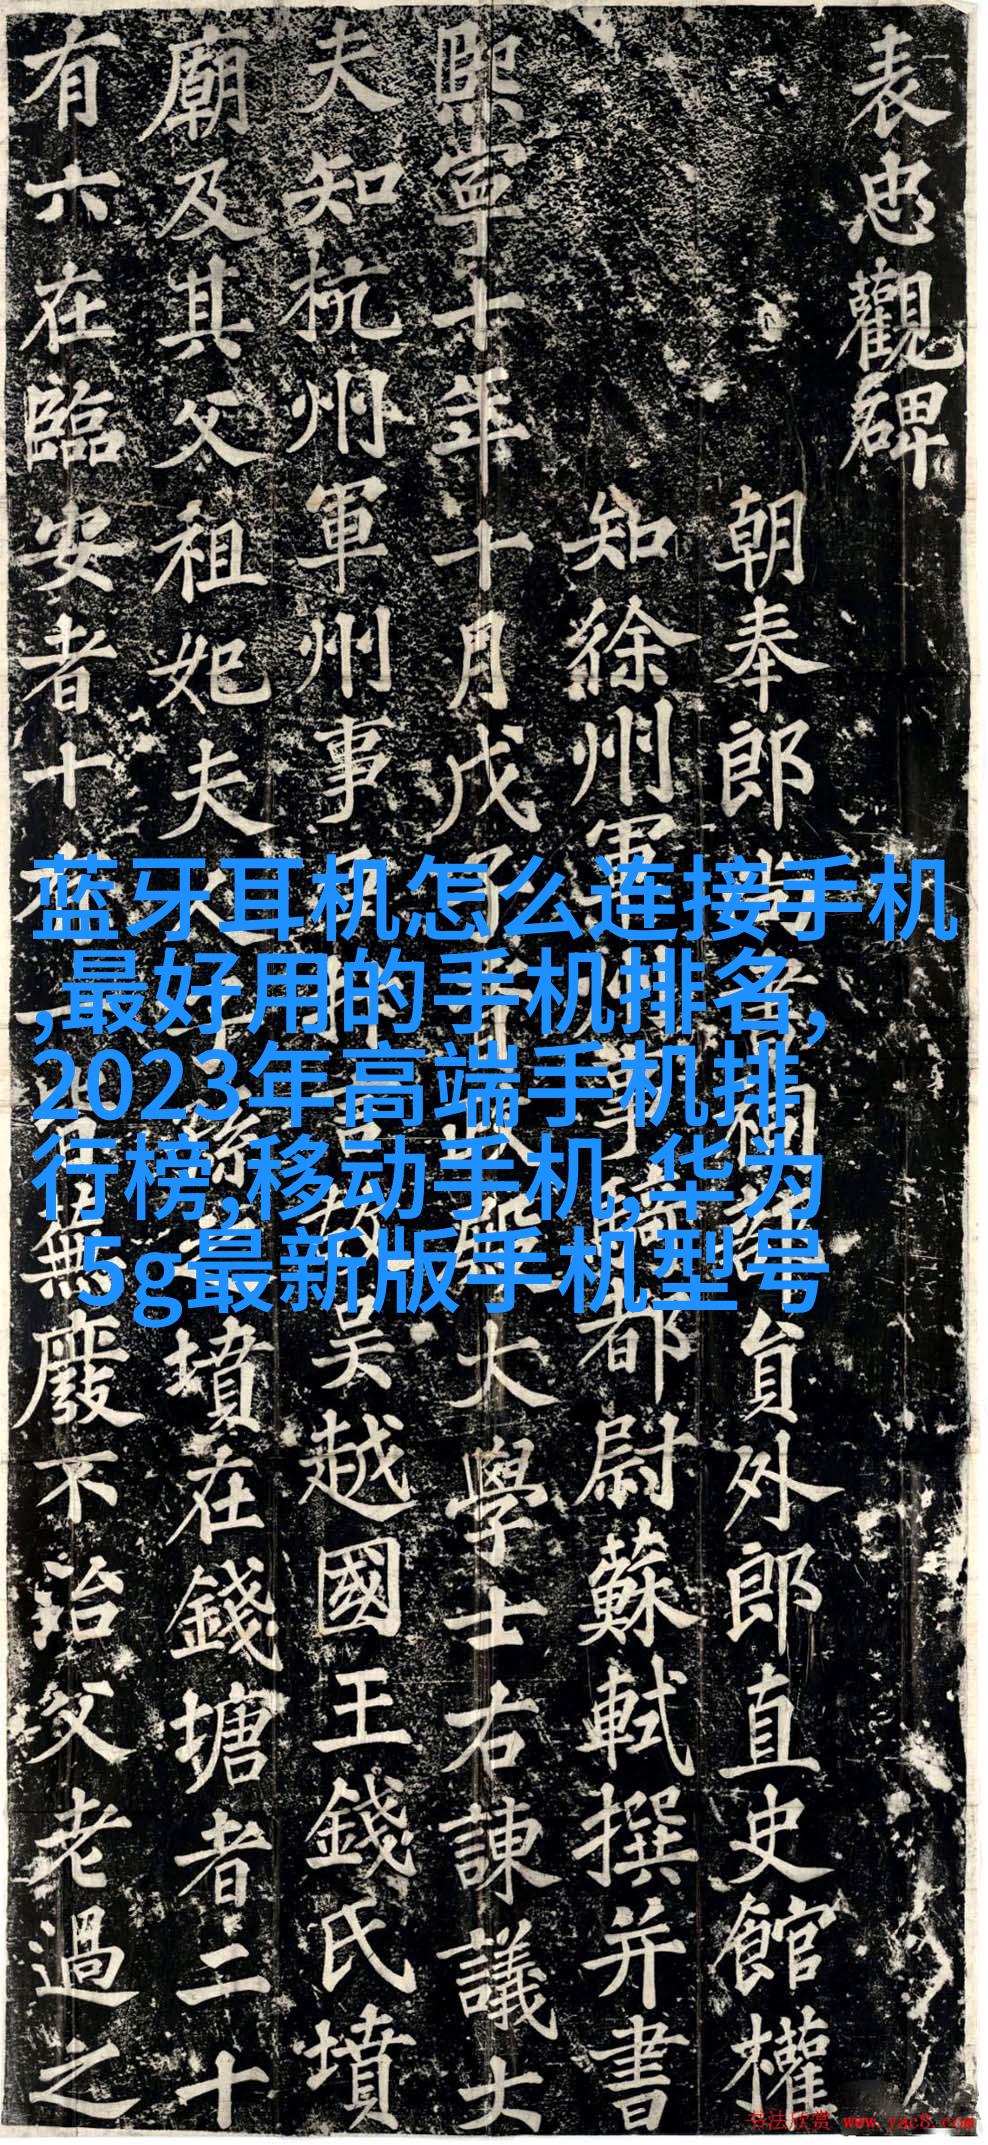 表忠觀碑
朝奉郎尚書祠部員外郎直史館權
知徐州軍州事騎都尉蘇軾撰并書
熙寧十年十月戊子資政殿大學士右諫議大
夫知杭州軍州事臣抃言故吴越國王錢氏墳
廟及其父祖妃夫人子孫之墳在錢塘者二十
有六在臨安者十有一皆蕪廢不治父老過之
蓝牙耳机怎么连接手机
,最好用的手机排名,
2023年高端手机排
行榜,移动手机,华为
5g最新版手机型号
书法欣赏 www.yac8.com